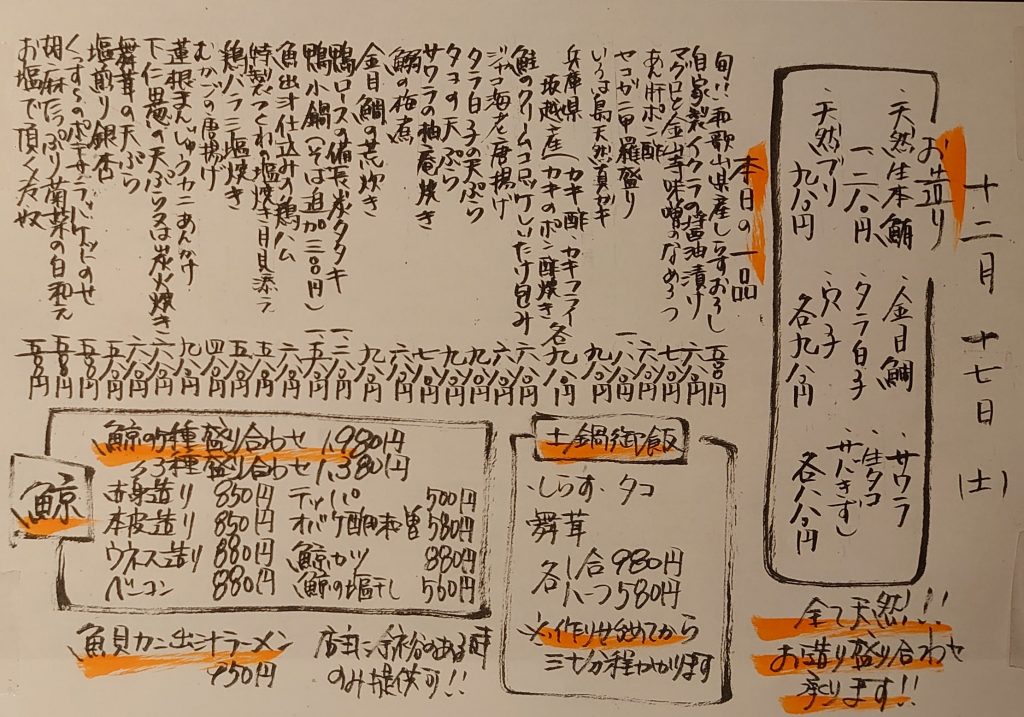 十二月 十七日 (土)
お造り
・天然生本鮪
一二八〇円
・天然ブリ
九八〇円
・金目鯛
・タラ白子
・穴子
各九八〇円
・サワラ
・生タコ
・サバきずし
各八八〇円
全て天然!!
お造り盛り合わせ
承ります!!
本日の一品
旬!!和歌山県産しらすおろし 五八〇円
自家製イクラの醤油漬け 六八〇円
マグロと金山寺味噌のなめろう 七八〇円
あん肝ポン酢 六八〇円
セコガニ甲羅盛り 一、八〇円
いろは島天然真ガキ 九八〇円
兵庫県
坂越産 カキ酢・カキフライ
カキのポン酢焼き 各九八〇円
鮭のクリームコロッケしいたけ包み 六八〇円
ジャコ海老唐揚げ 六八〇円
タラ白子天ぷら 九八〇円
タコの天ぷら 九八〇円
サワラの柚庵焼き 七八〇円
鯛の梅煮 六八〇円
金目鯛の荒炊き 九八〇円
鴨ロースの備長炭タタキ 一、二八〇円
鴨小鍋(そば追加三〇〇円) 一、五八〇円
魚出汁仕込みの鶏ハム 六八〇円
特製つくねの塩焼き月見添え 五八〇円
鶏ハラミ塩焼き 五八〇円
むかごの唐揚げ 四八〇円
蓮根まんじゅうカニあんかけ 九八〇円
下仁田葱の天ぷら又は炭火焼き 六八〇円
舞茸の天ぷら 六八〇円
塩煎り銀杏 五八〇円
くつすらのポテサラ
胡麻たっぷり菊菜の白和え 五八〇円
お塩で頂く冷奴 五八〇円
土鍋御飯
・しらす・タコ
舞茸
各一合 980円
各ハーフ 580円
※作り始めてから
三十分程かかります
鯨
鯨の5種盛り合わせ 1,980円
〃3種盛り合わせ 1,380円
赤身造り 850円
本皮造り 850円
ウネス造り 880円
ベーコン 880円
テッパ 500円
オバケ酢味噌 580円
鯨カツ 880円
鯨の塩干し 560円
魚貝カニ出汁ラーメン
950円
店主に余裕のある時
のみ提供可!!